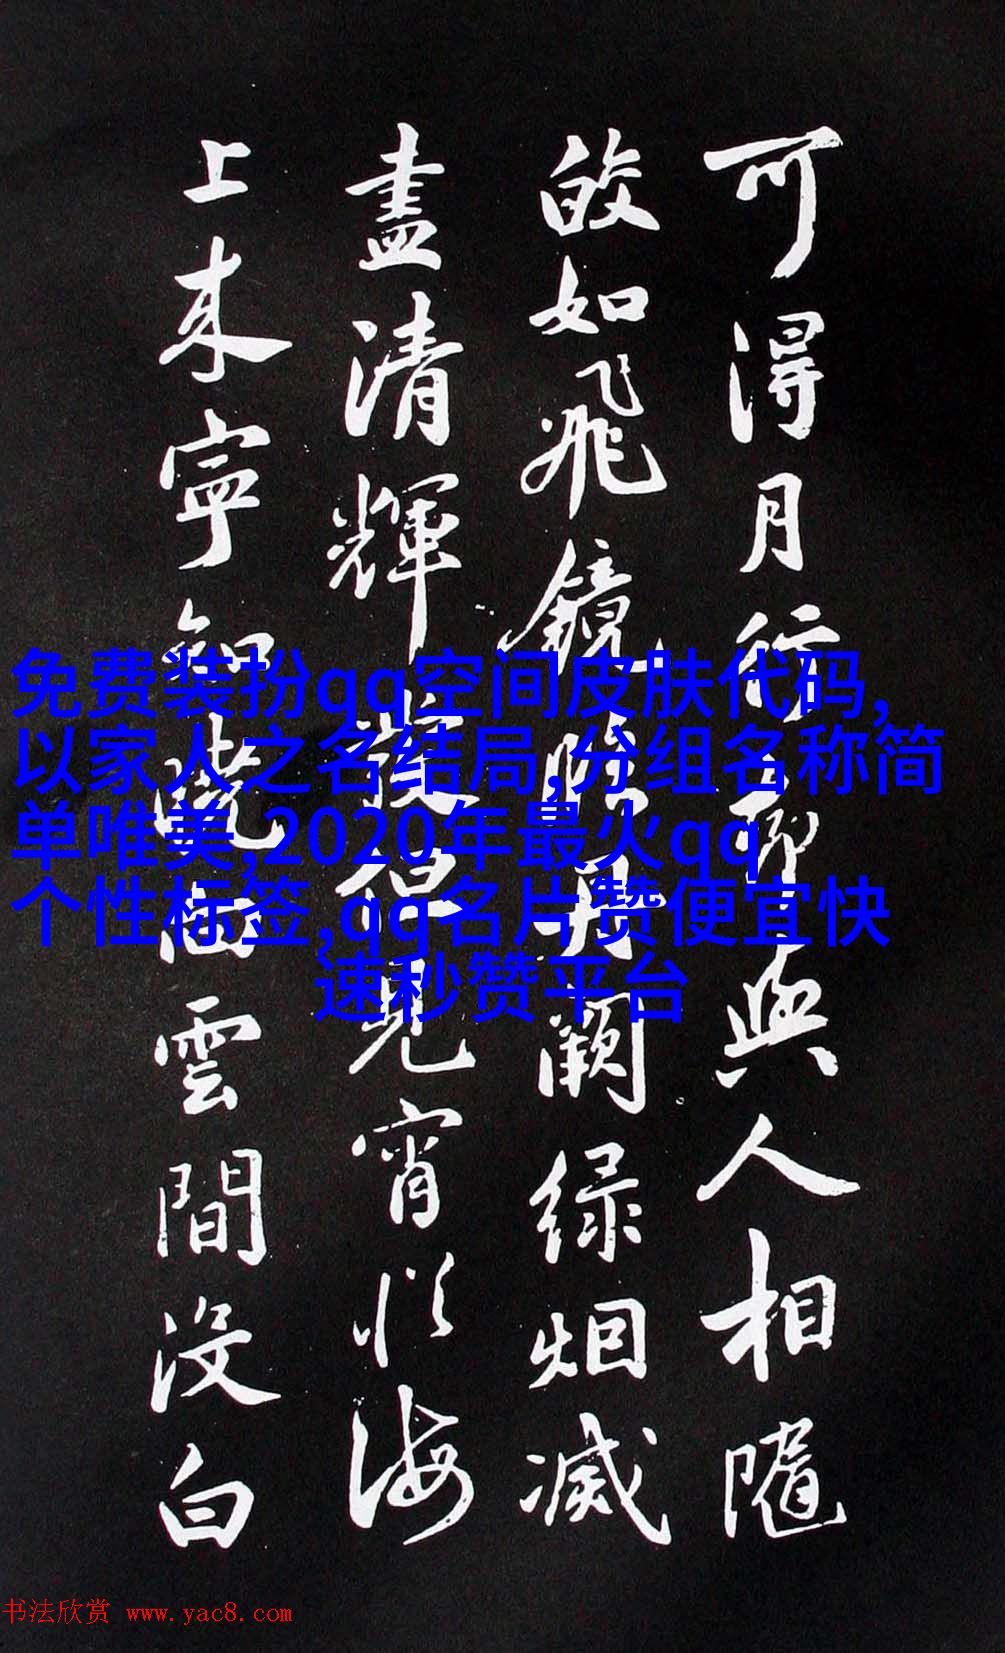 可得月行却與人相隨
皎如飛鏡臨丹闕绿烟滅
盡清輝發但見宵從海
上来寧知曉向雲間沒白
免费装扮qq空间皮肤代码,
以家人之名结局,分组名称简
单唯美,2020年最火qq
个性标签,qq名片赞便宜快
速秒赞平台
书法欣赏 www.yac8.com